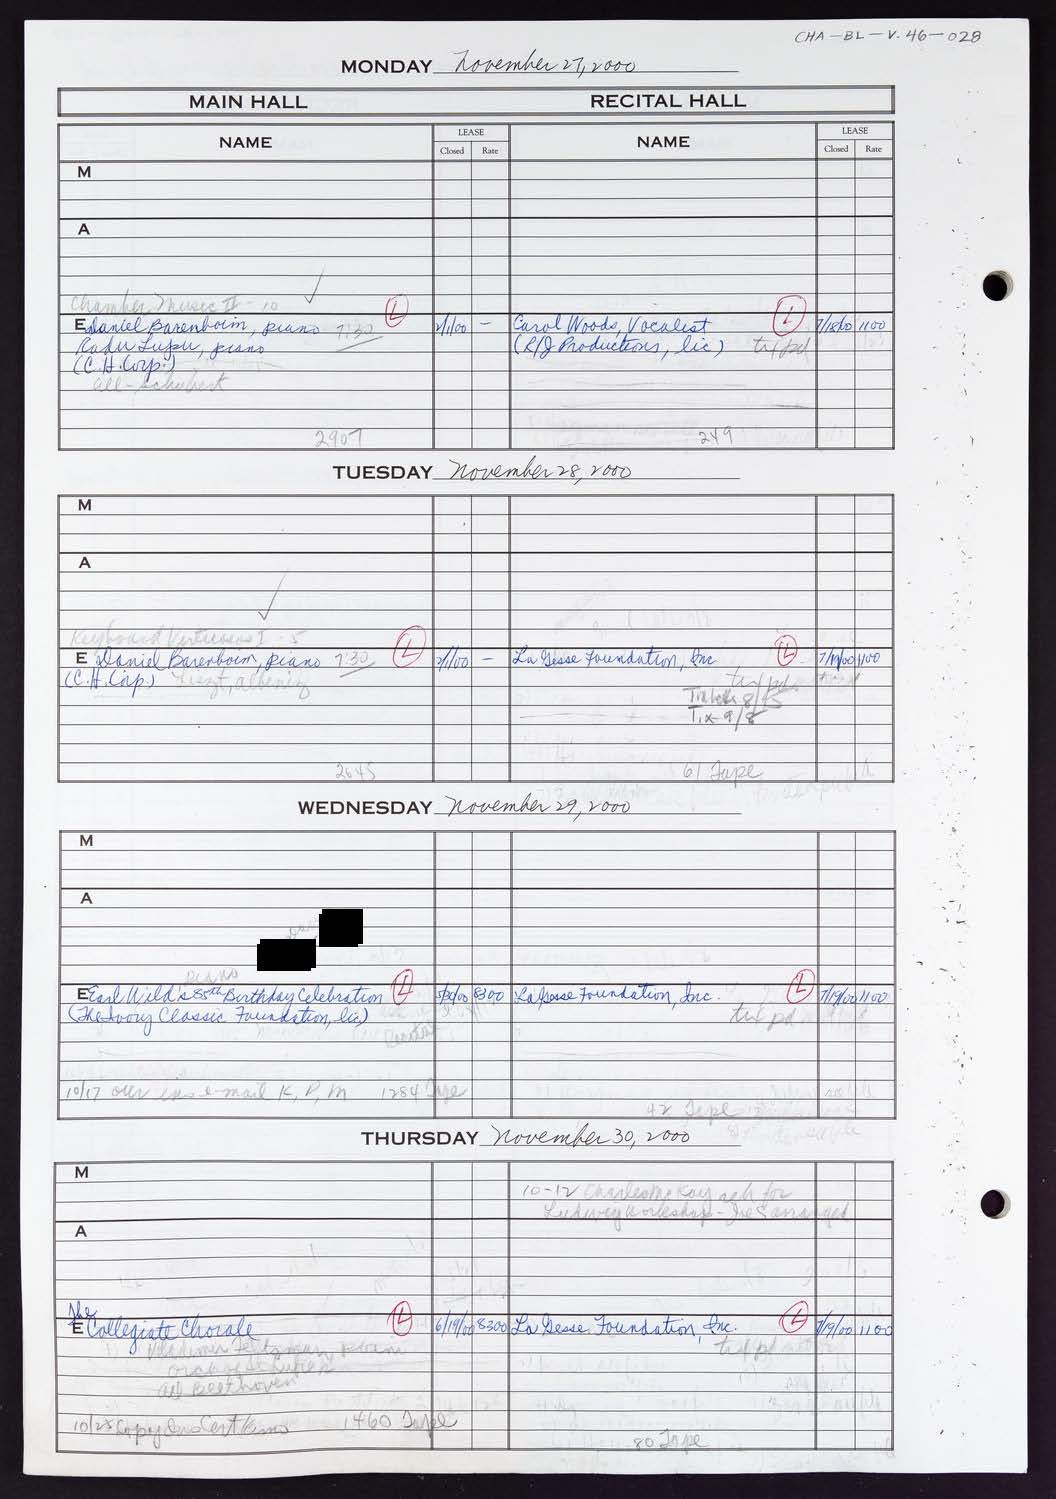 CHA-BL-V.46-028
MONDAY November 27, 2000
MAIN HALL RECITAL HALL
NAME LEASE Closed Rate NAME LEASE Closed Rate
M
A
Chamber Music II - 10
E Daniel Barenboim, piano 7:30 L 2/1/00 - Carol Woods, Vocalist L 7/18/00 1100
Radu Lupu, piano (R/J Productions, Inc) tix pd
(C.H. Corp.)
all-Schubert
2907 249
TUESDAY November 28, 2000
M
A
Keyboard Virtuosos I - 5
E Daniel Barenboim, piano 7:30 L 2/1/00 - La Gesse Foundation, Inc L 7/19/00 1100
(C.H. Corp.) Liszt, Albeniz tix pd
8/15
Tix 9/8
2645 61 Tape
WEDNESDAY November 29, 2000
M
A
piano
E Earl Wild's 85th Birthday Celebration L 5/30/00 8300 La Gesse Foundation, Inc. L 7/19/00 1100
(The Ivory Classic Foundation, Inc) tix pd
Recital
10/17 our ins e-mail K, P, M 1284 Tape
42 Tape
THURSDAY November 30, 2000
M
10-12 Charles McKay reh for
Ludwig Workshop - Ire S arranged
A
The
E Collegiate Chorale L 6/19/00 8300 La Gesse Foundation, Inc. L 7/19/00 1100
Vladimir Feltsman, piano tix pd
Orch of St. Luke's
All Beethoven
10/25 Copy Ins Cert 1460 Tape
80 Tape